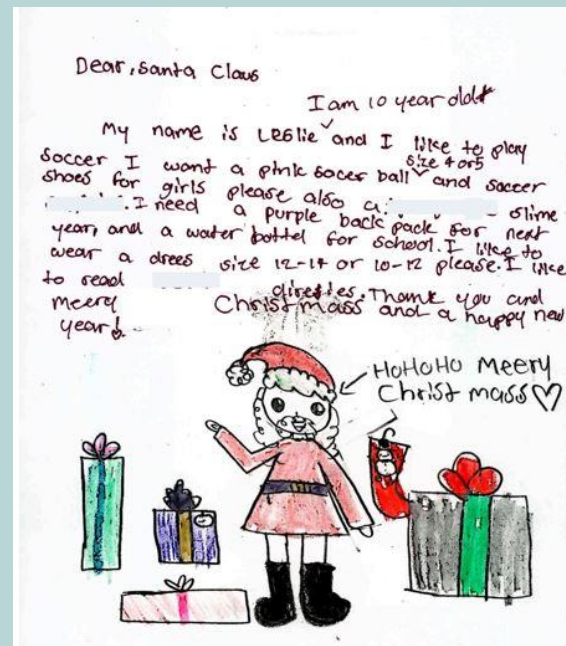 Dear, Santa Claus
I am 10 year old
My name is Leslie and I like to play
soccer I want a pink soccer ball size 4 or 5 and soccer
shoes for girls please also a. slime
. I need a purple back pack for next
year, and a water bottel for school. I like to
wear a drees size 12-14 or 10-12 please. I like
to read direties. Thank you and
meery Christmass and a happy new
year!
HoHoHo Meery
Christmass